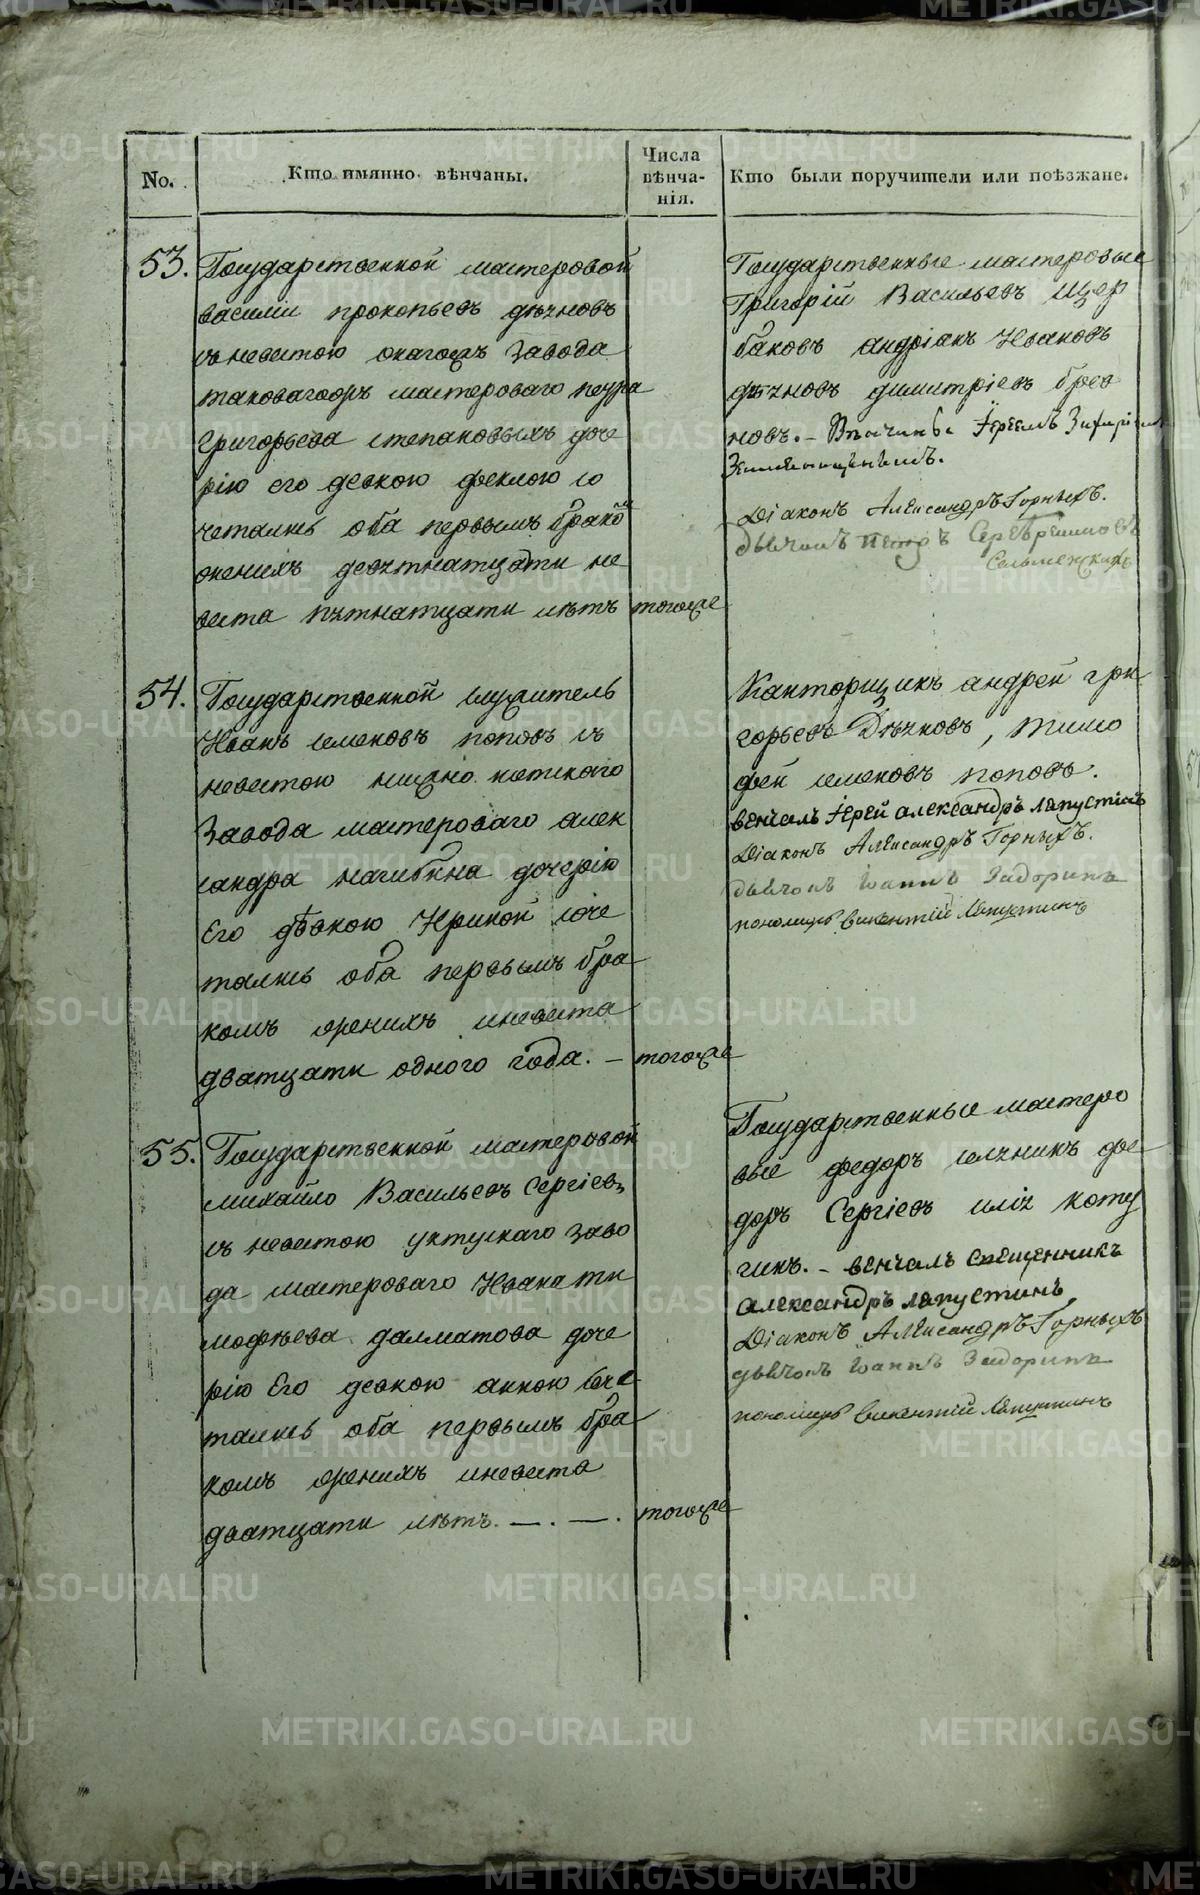 No.
Кто имянно вѣнчаны.
Числа
вѣнча-
нія.
Кто были поручители или поѣзжане.
53.
Государственной мастеровой
василіи прокопьевъ дѣчновъ
съ невестою онагожъ завода
таковагожъ мастероваго петра
григорьева степановыхъ доче
рію его девкою феклою со
четались оба первымъ бракомъ
женихъ девятнатцати не
веста пятнатцати лѣтъ
тогоже
Государственные мастеровые
Григорій Васильевъ Щер
баковъ андріянъ Ивановъ
дѣчновъ димитріевъ брез
новъ. –
Діаконъ Александръ Горныхъ.
дьячокъ Петръ Серебренниковъ
54.
Государственной служитель
Иванъ семеновъ поповъ съ
невестою нижно исетскаго
завода мастероваго алек
сандра нагибина дочерію
его дѣвкою Ириной соче
тались оба первымъ бра
комъ женихъ иневеста
дватцати одного года. –
тогоже
Канторщикъ андрей гри
горьевъ Дѣчковъ, тимо
фей семеновъ поповъ.
венчалъ Іерей александръ ляпустинъ
Діаконъ Александръ Горныхъ.
дьячокъ Іоаннъ Задоринъ
пономарь викентій Ляпустинъ
55.
Государственной мастеровой
михайло Васильевъ Сергіевъ
съ невестою уктускаго заво
да мастероваго Ивана ти
мофѣева далматова доче
рію его девкою анною соче
тались оба первымъ бра
комъ женихъ иневеста
дватцати лѣтъ. —. —.
тогоже
Государственные мастеро
вые федоръ фе
доръ Сергіевъ
гинъ. – венчалъ священникъ
александръ ляпустинъ
Діаконъ Александръ Горныхъ
дьячокъ Іоаннъ Задоринъ
пономарь викентій Ляпустинъ
METRIKI.GASO-URAL.RU